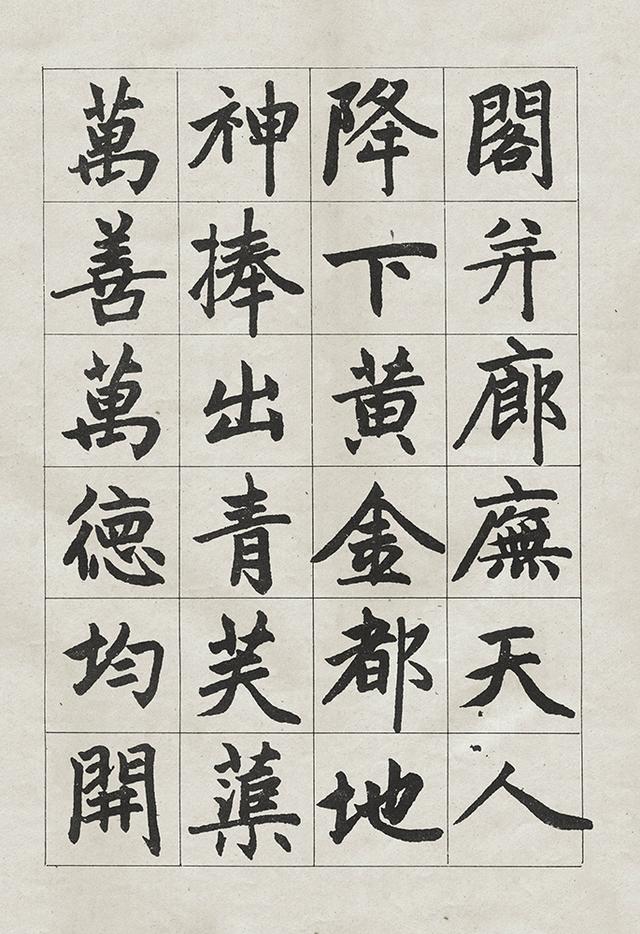 閣并廊廡天人
降下黄金都地
神捧出青芙蕖
萬善萬徳均開